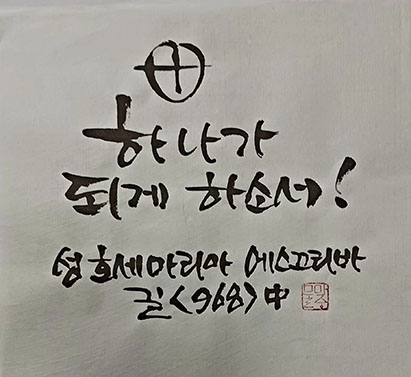 하나가
되게 하소서!
성 호세마리아 에스끄리바
길<968>中